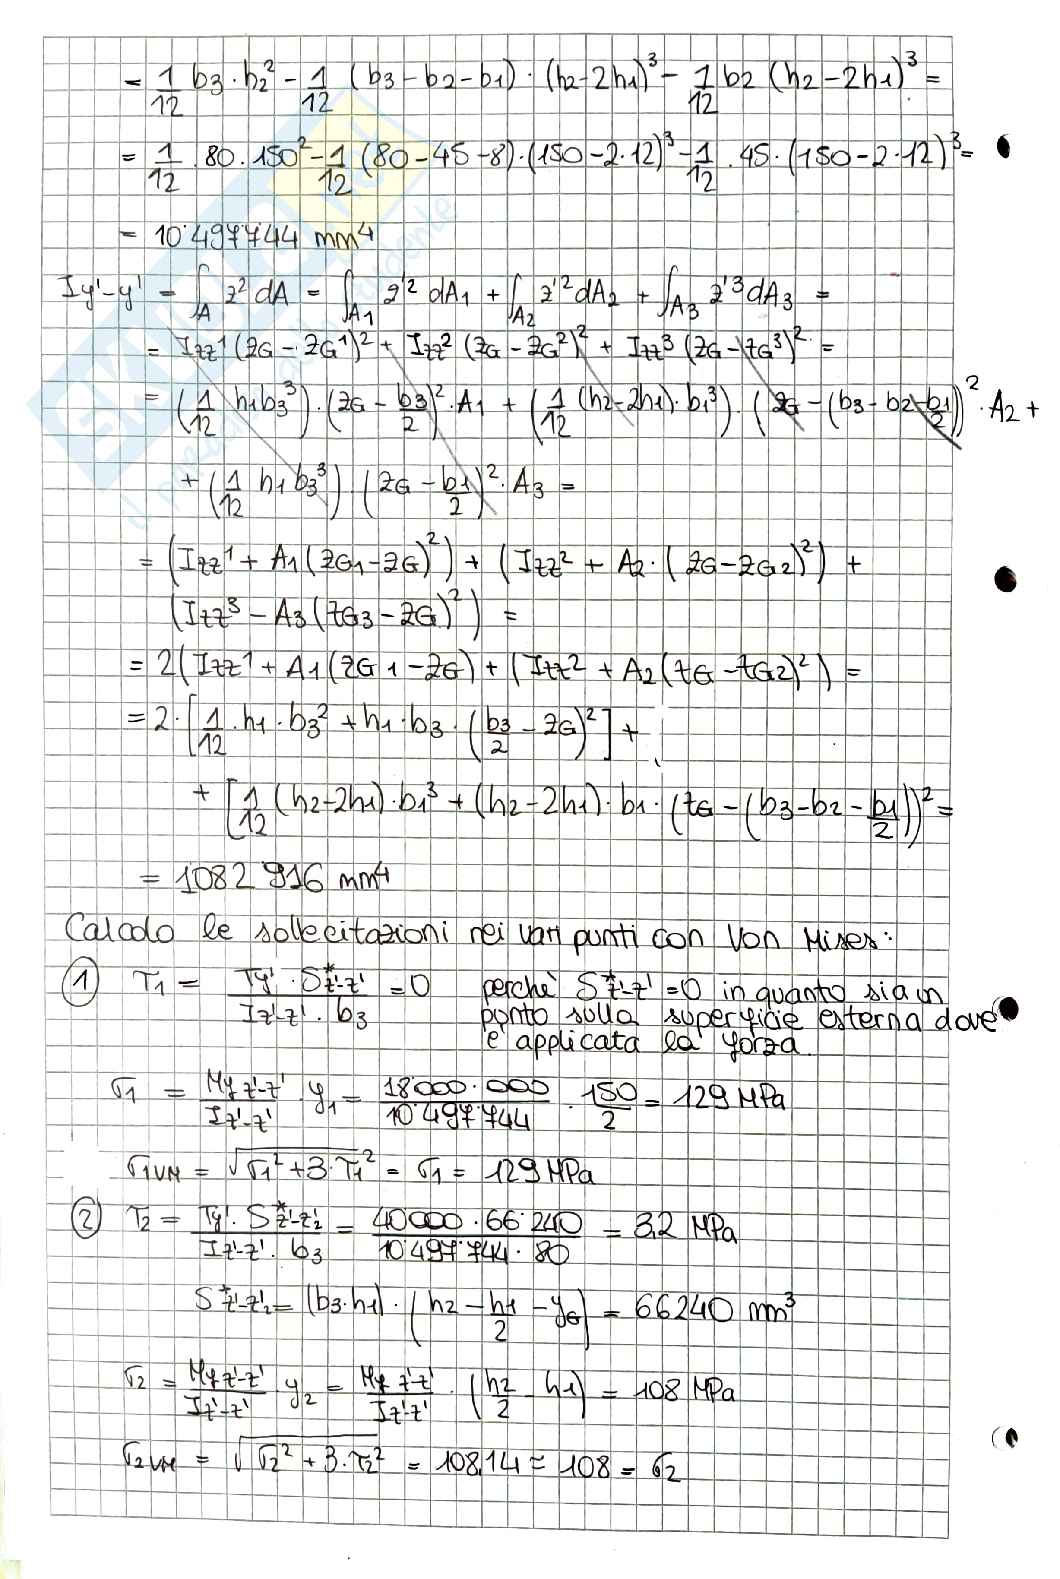 = 1/12 b3·h2² - 1/12 (b3-b2-b1)·(h2-2h1)³ - 1/12 b2 (h2-2h1)³ =
= 1/12·80·150² - 1/12 (80-45-8)·(150-2·12)³ - 1/12·45·(150-2·12)³ =
= 10'497'744 mm⁴
Iy'-y' = ∫A z² dA = ∫A1 z'² dA1 + ∫A2 z'² dA2 + ∫A3 z'³ dA3 =
= Izz¹ (zG - zG¹)² + Izz² (zG - zG²)² + Izz³ (zG - zG³)² =
= (1/12 h1 b3³)·(zG - b3/2)²·A1 + (1/12 (h2-2h1)·b1³)·(zG - (b3-b2-b1/2))²·A2 +
+ (1/12 h1 b3³)·(zG - b1/2)²·A3 =
= (Izz¹ + A1 (zG1-zG)²) + (Izz² + A2·(zG-zG2)²) +
(Izz³ - A3 (zG3-zG)²) =
= 2(Izz¹ + A1 (zG1-zG) + (Izz² + A2 (zG-zG2)²) =
= 2·[1/12·h1·b3² + h1·b3·(b3/2 - zG)²] +
+ [1/12 (h2-2h1)·b1³ + (h2-2h1)·b1·(zG-(b3-b2-b1/2))² =
= 1082 916 mm⁴
Calcolo le sollecitazioni nei vari punti con Von Mises:
① τ1 = Ty'·S*z'-z' / Iz'-z'·b3 = 0 perchè S*z'-z' = 0 in quanto sia un
punto sulla superficie esterna dove
è applicata la forza.
σ1 = Mf z'-z' / Iz'-z' · y1 = 18000·000 / 10'497'744 · 150/2 = 129 MPa
σ1VM = √σ1² + 3·τ1² = σ1 = 129 MPa
② τ2 = Ty'·S*z'-z'2 / Iz'-z'·b3 = 40000·66'240 / 10'497'744·80 = 3,2 MPa
S*z'-z'2 = (b3·h1)·(h2 - h1/2 - yG) = 66240 mm³
σ2 = Mf z'-z' / Iz'-z' · y2 = Mf z'-z' / Iz'-z' · (h2/2 - h1) = 108 MPa
σ2VM = √σ2² + 3·τ2² = 108,14 ≃ 108 = σ2